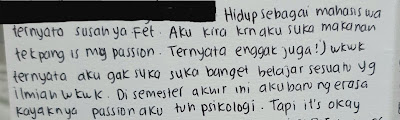 Hidup sebagai mahasiswa
ternyata susah ya Fet. Aku kira krn aku suka makanan
tekpang is my passion. Ternyata enggak juga!) wkwk
ternyata aku gak suka suka banget belajar sesuatu yg
ilmiah wkwk. Di semester akhir ini aku baru ngerasa
kayaknya passion aku tuh psikologi. Tapi it's okay